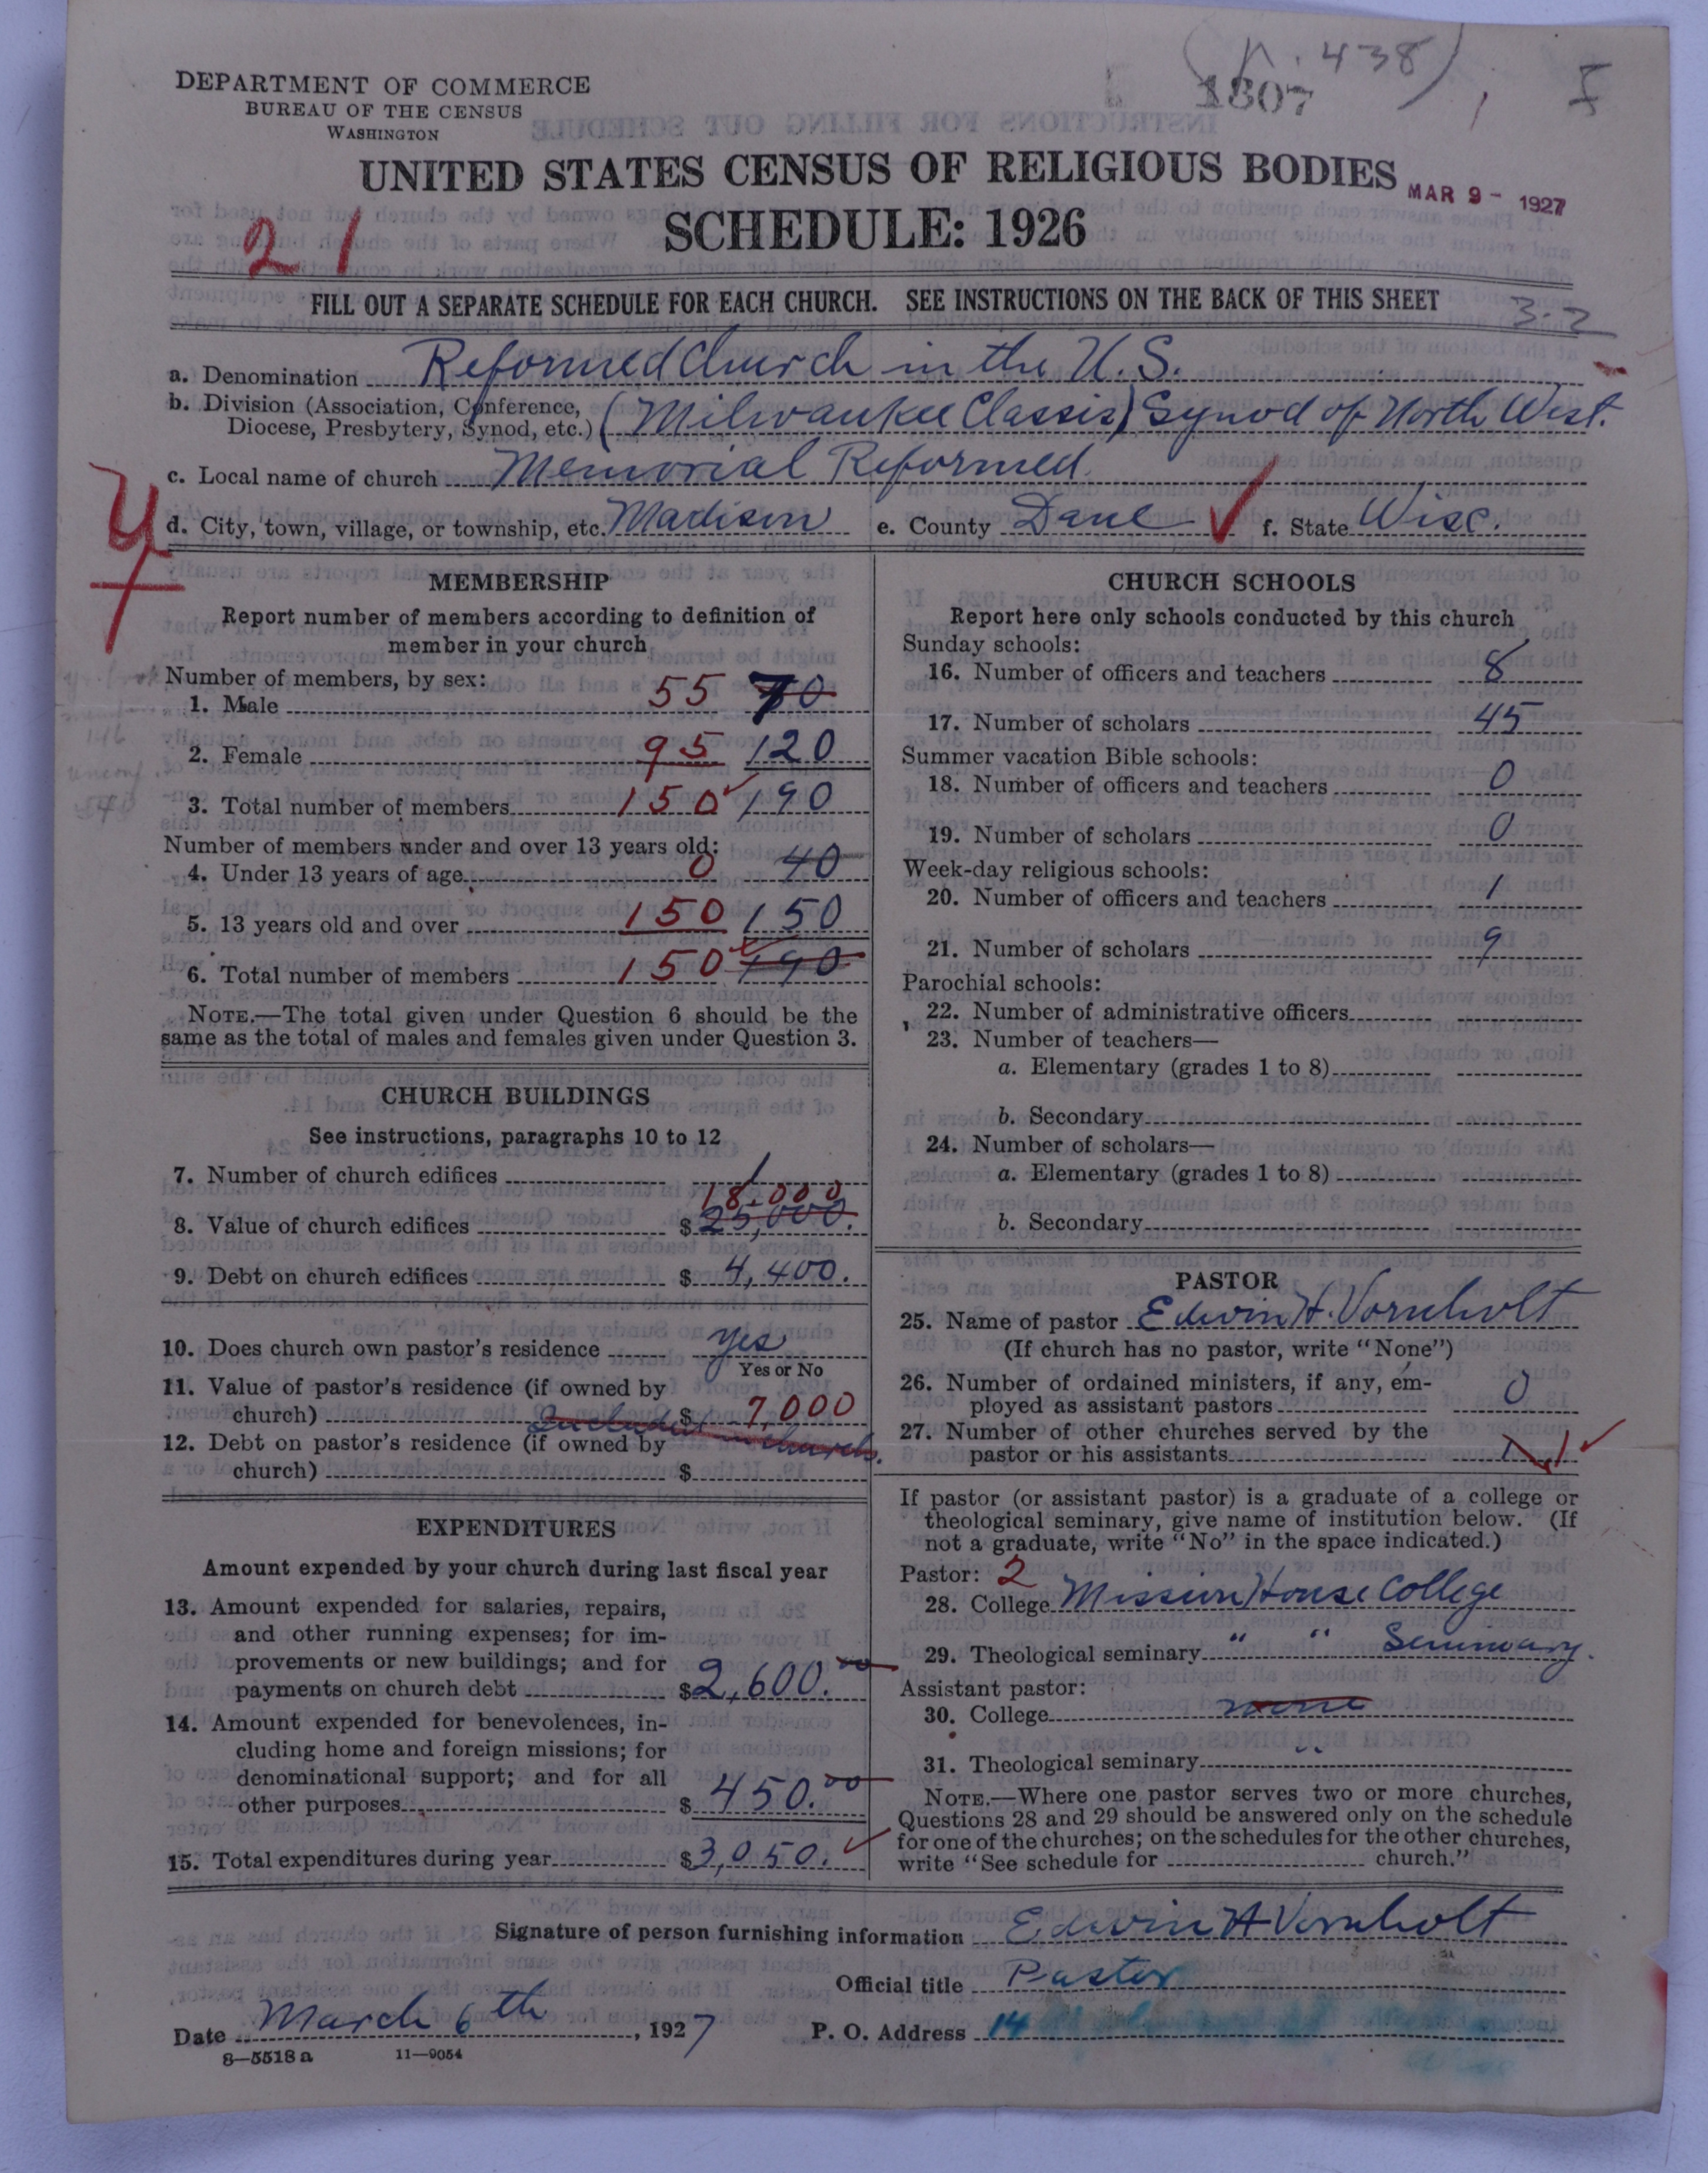 (p. 438)
1807
I
DEPARTMENT OF COMMERCE
BUREAU OF THE CENSUS
WASHINGTON
UNITED STATES CENSUS OF RELIGIOUS BODIES
MAR 9 - 1927
SCHEDULE: 1926
21
FILL OUT A SEPARATE SCHEDULE FOR EACH CHURCH. SEE INSTRUCTIONS ON THE BACK OF THIS SHEET
3-2
a. Denomination Reformed Church in the U.S.
b. Division (Association, Conference,
Diocese, Presbytery, Synod, etc.) (Milwaukee Classis) Synod of North West.
c. Local name of church Memorial Reformed.
d. City, town, village, or township, etc. Madison e. County Dane f. State Wisc.
MEMBERSHIP
Report number of members according to definition of
member in your church
Number of members, by sex:
1. Male 55 70
2. Female 95 120
3. Total number of members 150 190
Number of members under and over 13 years old:
4. Under 13 years of age 0 40
5. 13 years old and over 150 150
6. Total number of members 150 190
NOTE.—The total given under Question 6 should be the
same as the total of males and females given under Question 3.
CHURCH BUILDINGS
See instructions, paragraphs 10 to 12
7. Number of church edifices 1
18,000
8. Value of church edifices $ 25,000.
9. Debt on church edifices $ 4,400.
10. Does church own pastor's residence yes
Yes or No
11. Value of pastor's residence (if owned by
church) Included $ 7,000
in church.
12. Debt on pastor's residence (if owned by
church) $
EXPENDITURES
Amount expended by your church during last fiscal year
13. Amount expended for salaries, repairs,
and other running expenses; for im-
provements or new buildings; and for
payments on church debt $ 2,600.00
14. Amount expended for benevolences, in-
cluding home and foreign missions; for
denominational support; and for all
other purposes $ 450.00
15. Total expenditures during year $ 3,050.
CHURCH SCHOOLS
Report here only schools conducted by this church
Sunday schools:
16. Number of officers and teachers 8
17. Number of scholars 45
Summer vacation Bible schools:
18. Number of officers and teachers 0
19. Number of scholars 0
Week-day religious schools:
20. Number of officers and teachers 1
21. Number of scholars 9
Parochial schools:
22. Number of administrative officers
23. Number of teachers—
a. Elementary (grades 1 to 8)
b. Secondary
24. Number of scholars—
a. Elementary (grades 1 to 8)
b. Secondary
PASTOR
25. Name of pastor Edwin H. Vornholt
(If church has no pastor, write "None")
26. Number of ordained ministers, if any, em-
ployed as assistant pastors 0
27. Number of other churches served by the
pastor or his assistants 1
If pastor (or assistant pastor) is a graduate of a college or
theological seminary, give name of institution below. (If
not a graduate, write "No" in the space indicated.)
Pastor: 2
28. College Mission House College
29. Theological seminary " " Seminary.
Assistant pastor:
30. College none
31. Theological seminary "
NOTE.—Where one pastor serves two or more churches,
Questions 28 and 29 should be answered only on the schedule
for one of the churches; on the schedules for the other churches,
write "See schedule for church."
Signature of person furnishing information Edwin H Vornholt
Official title Pastor
Date March 6th, 1927 P. O. Address 14
8—5518 a 11—9054